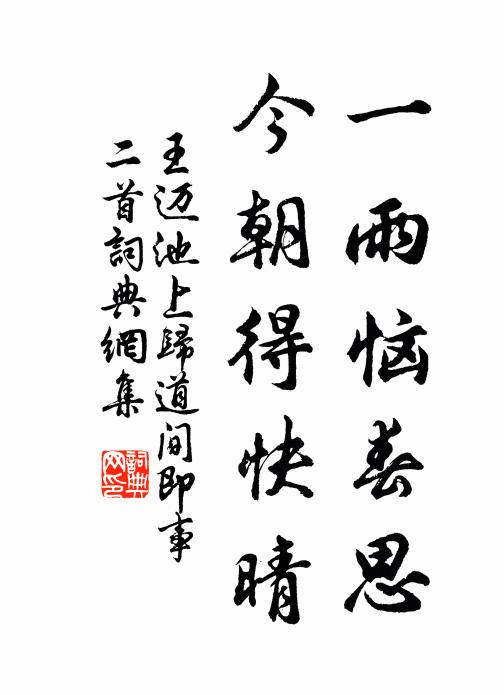 一雨恼春思
今朝得快晴
王迈池上歸道间即事
二首詞典網集
詞典网印